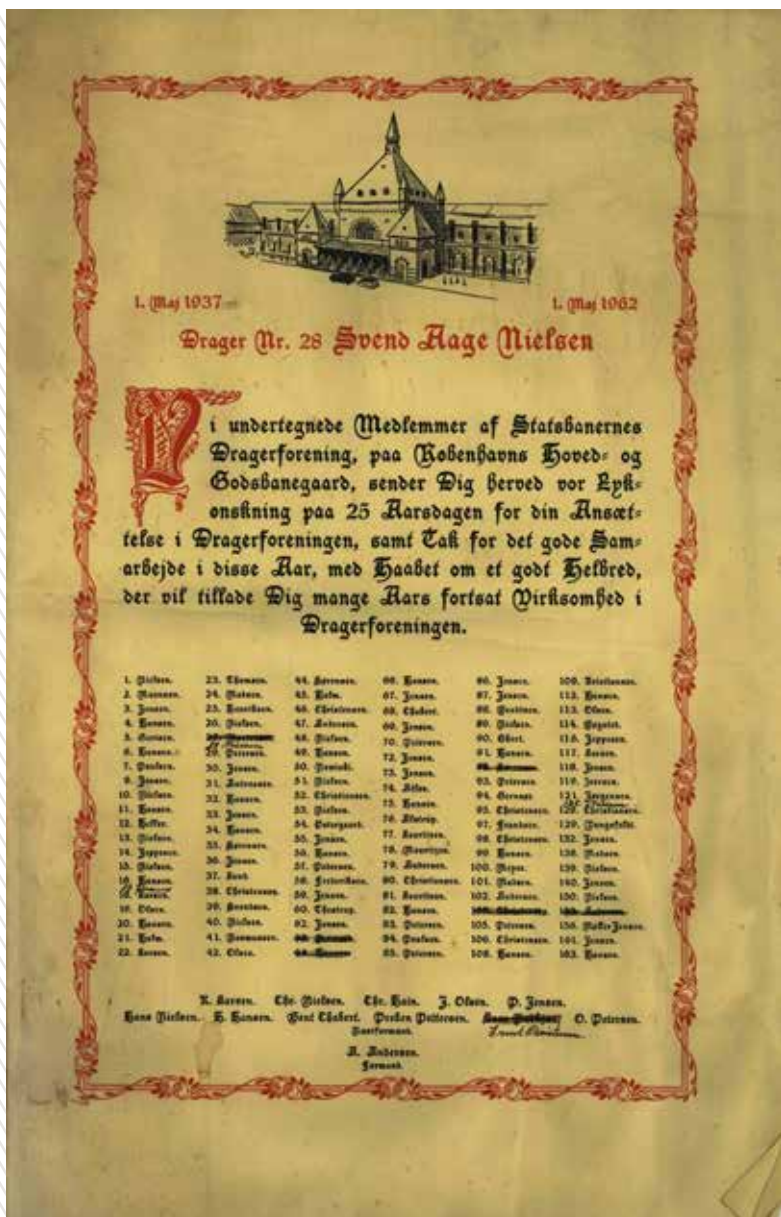 1. Maj 1937
1. Maj 1962
Drager Nr. 28 Svend Aage Nielsen
Vi undertegnede Medlemmer af Statsbanernes
Dragerforening, paa Københavns Hoved- og
Godsbanegaard, sender Dig herved vor Lyk-
ønskning paa 25 Aarsdagen for din Ansæt-
telse i Dragerforeningen, samt Tak for det gode Sam-
arbejde i disse Aar, med Haabet om et godt Helbred,
der vil tillade Dig mange Aars fortsat Virksomhed i
Dragerforeningen.
1. Nielsen.
2. Rasmussen.
3. Jensen.
4. Hansen.
6. Hansen.
7. Poulsen.
9. Jensen.
10. Nielsen.
11. Hansen.
13. Nielsen.
14. Jeppesen.
15. Nielsen.
16. Hansen.
19. Olsen.
20. Hansen.
21. Holm.
22. Larsen.
23. Thomsen.
24. Madsen.
25. Henriksen.
26. Nielsen.
29. Petersen.
30. Jensen.
31. Andersen.
32. Hansen.
33. Jensen.
34. Hansen.
35. Sørensen.
36. Jensen.
37. Lund.
38. Christensen.
39. Berntsen.
40. Nielsen.
41. Rasmussen.
42. Olsen.
44. Sørensen.
45. Holm.
46. Christensen.
47. Andersen.
48. Nielsen.
49. Hansen.
51. Nielsen.
52. Christiansen.
53. Nielsen.
54. Østergaard.
55. Jensen.
56. Hansen.
57. Petersen.
58. Frederiksen.
59. Jensen.
60. Thostrup.
62. Jensen.
66. Hansen.
67. Jensen.
68. Thabert.
69. Jensen.
70. Petersen.
72. Jensen.
73. Jensen.
75. Hansen.
77. Lauritsen.
78. Mouritzen.
79. Andersen.
80. Christiansen.
81. Lauritsen.
82. Hansen.
83. Petersen.
84. Poulsen.
85. Petersen.
86. Jensen.
87. Jensen.
89. Nielsen.
90. Ebert.
91. Hansen.
93. Petersen.
95. Christensen.
97. Frandsen.
98. Christensen.
99. Hansen.
100. Meyer.
101. Madsen.
102. Andersen.
105. Petersen.
106. Christensen.
108. Hansen.
109. Kristiansen.
112. Hansen.
113. Olsen.
116. Jeppesen.
117. Larsen.
118. Jensen.
119. Jensen.
121. Jørgensen.
125. Christiansen.
132. Jensen.
138. Madsen.
139. Nielsen.
140. Jensen.
150. Nielsen.
156. Møller-Jensen.
161. Jensen.
163. Hansen.
K. Larsen. Chr. Nielsen. Chr. Hein. J. Olsen. P. Jensen.
Hans Nielsen. H. Hansen. Bent Thabert. Preben Pettersen. O. Petersen.
Næstformand.
A. Andersen.
Formand.